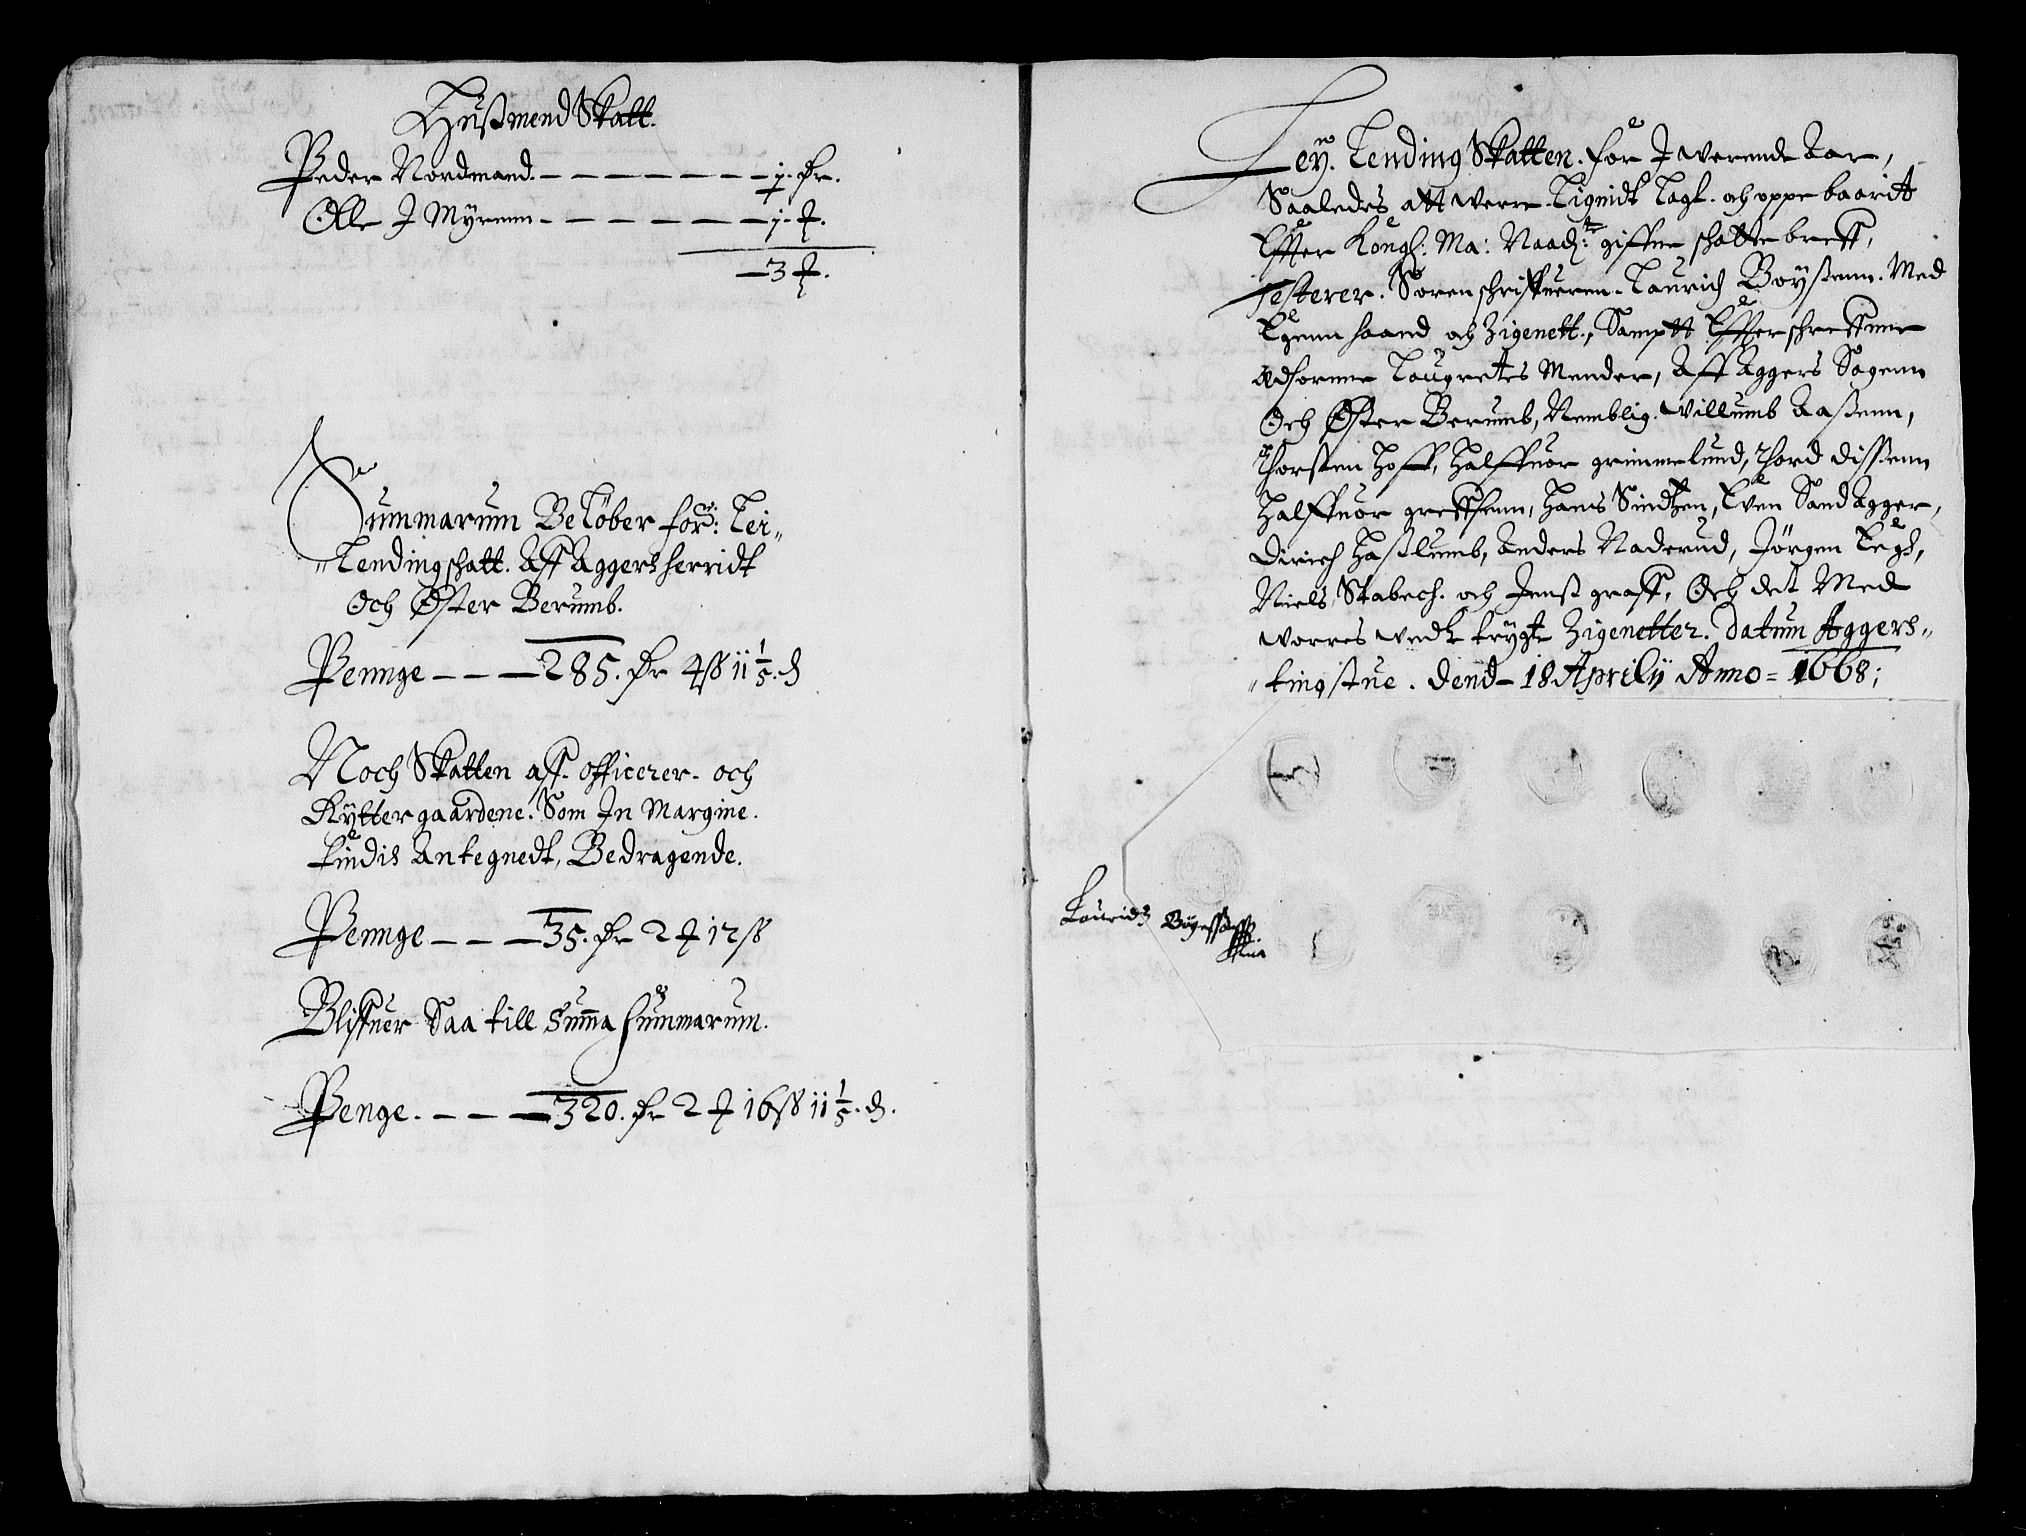 Hußmend Skatt.
Peder Nordmand. – – – – – – – 1. Dr.
Olle J Myrenn – – – – – – – 1. ₰.
– 3 ₰.
Summarum Beløber for: Lei„
„Lendingschatt. Aff Aggers herridt
Och Øster Berumb.
Pennge – – – 285. Dr 4 ß 11 1/5. d
Noch Skatten aff. officerer. och
Ryttergaardene. Som In Margine.
findis Antegnedt, Bedragende.
Pennge – – – 35. Dr 2 ₰ 12 ß
Bliffuer Saa till Summa summarum.
Penge. – – – 320. Dr 2 ₰ 16 ß 11 1/5. d.
Ley. Lending Skatten. for J werende Aar,
Saaledes att were. Lignidt Lagt. och oppebaaritt
Effter Kongl: Ma: Naadst: giffne schatte breff,
Testerer. Sorenschriffueren. Laurids Boyßenn. Med
Egenn haand och Zigenett, Sampt Effterschreffnne
Edsornne Laugrettes Mender, Aff Aggers Sogenn
Och Øster Berumb, Nemblig. Villumb Aaßenn,
Thorsten Hoff, Halffuor grimmelund, Thord Dissenn
Halffuor greffsenn, Hans Sindsen, Even Sandagger,
Dirich Haßlumb, Anders Naderud, Jörgen Legh,
Niels Stabech. och Jenß graff, Och det Med
worres wedt trygte Zigenetter. Datum Aggers„
„tingstue. Dend 18 Aprilij Anno = 1668;
Lauridtz Boyessen